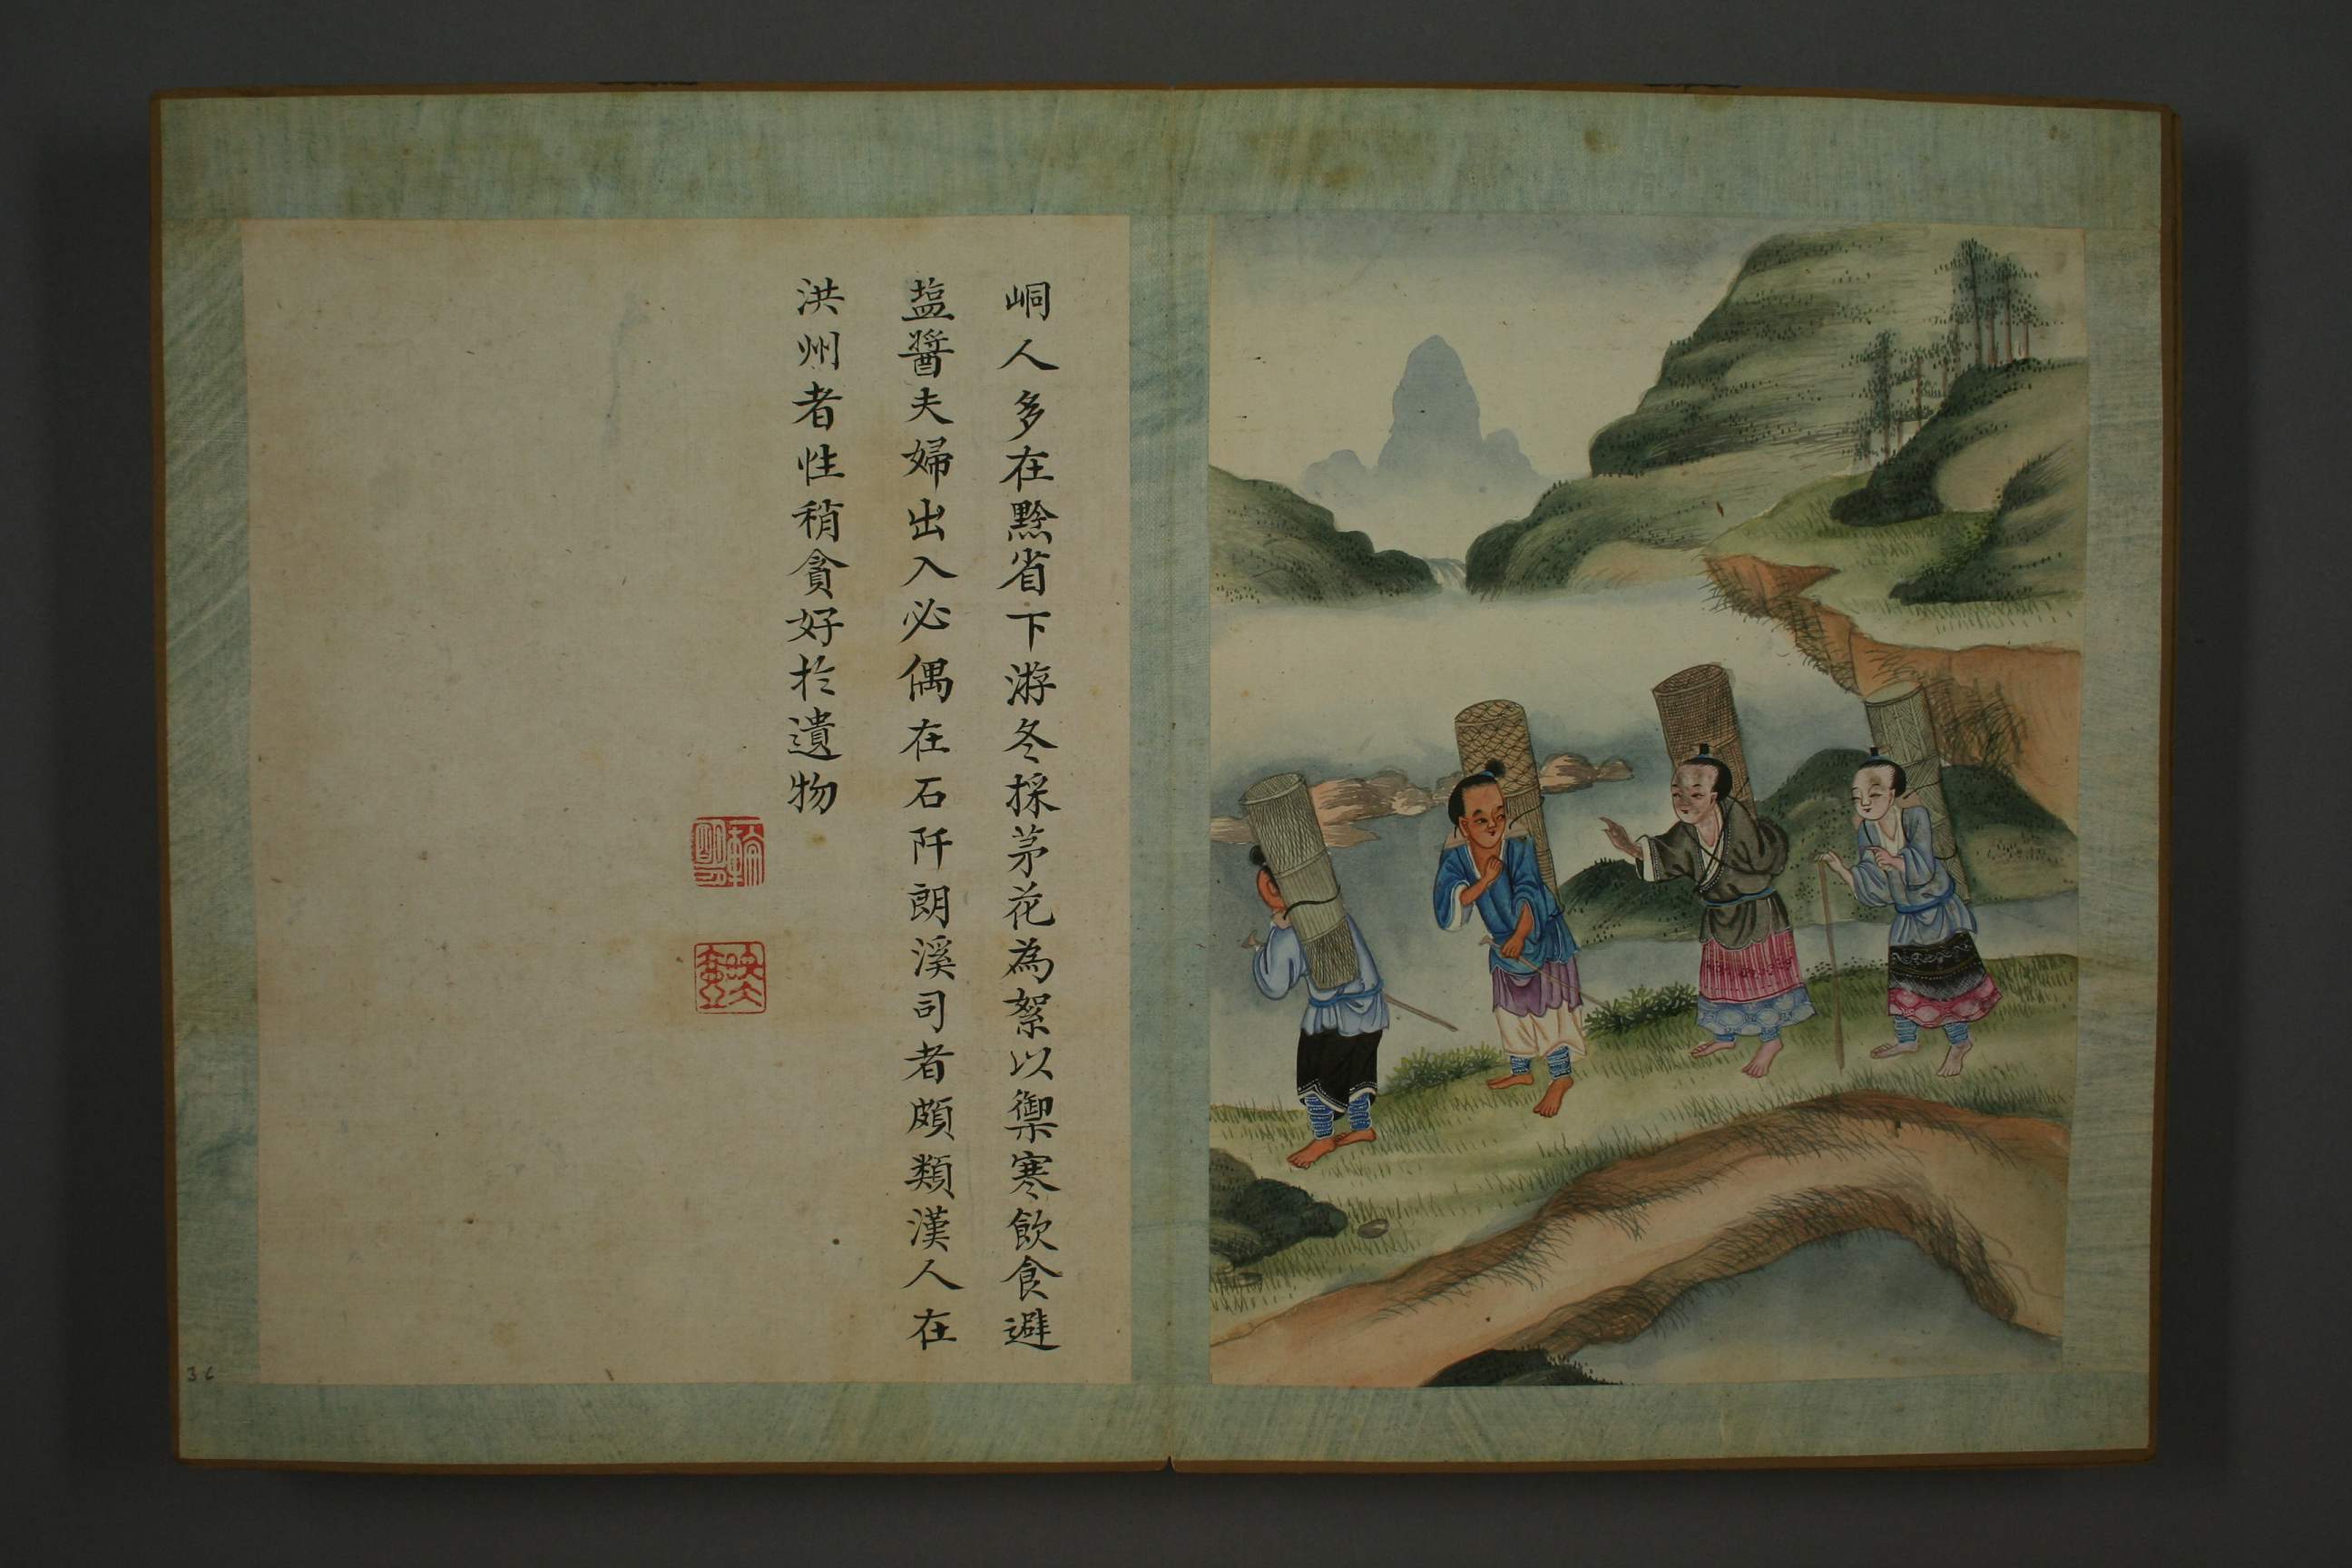 峒人多在黔省下游冬採茅花為絮以禦寒飲食避
塩醬夫婦出入必偶在石阡朗溪司者頗類漢人在
洪州者性稍貪好於遺物
36